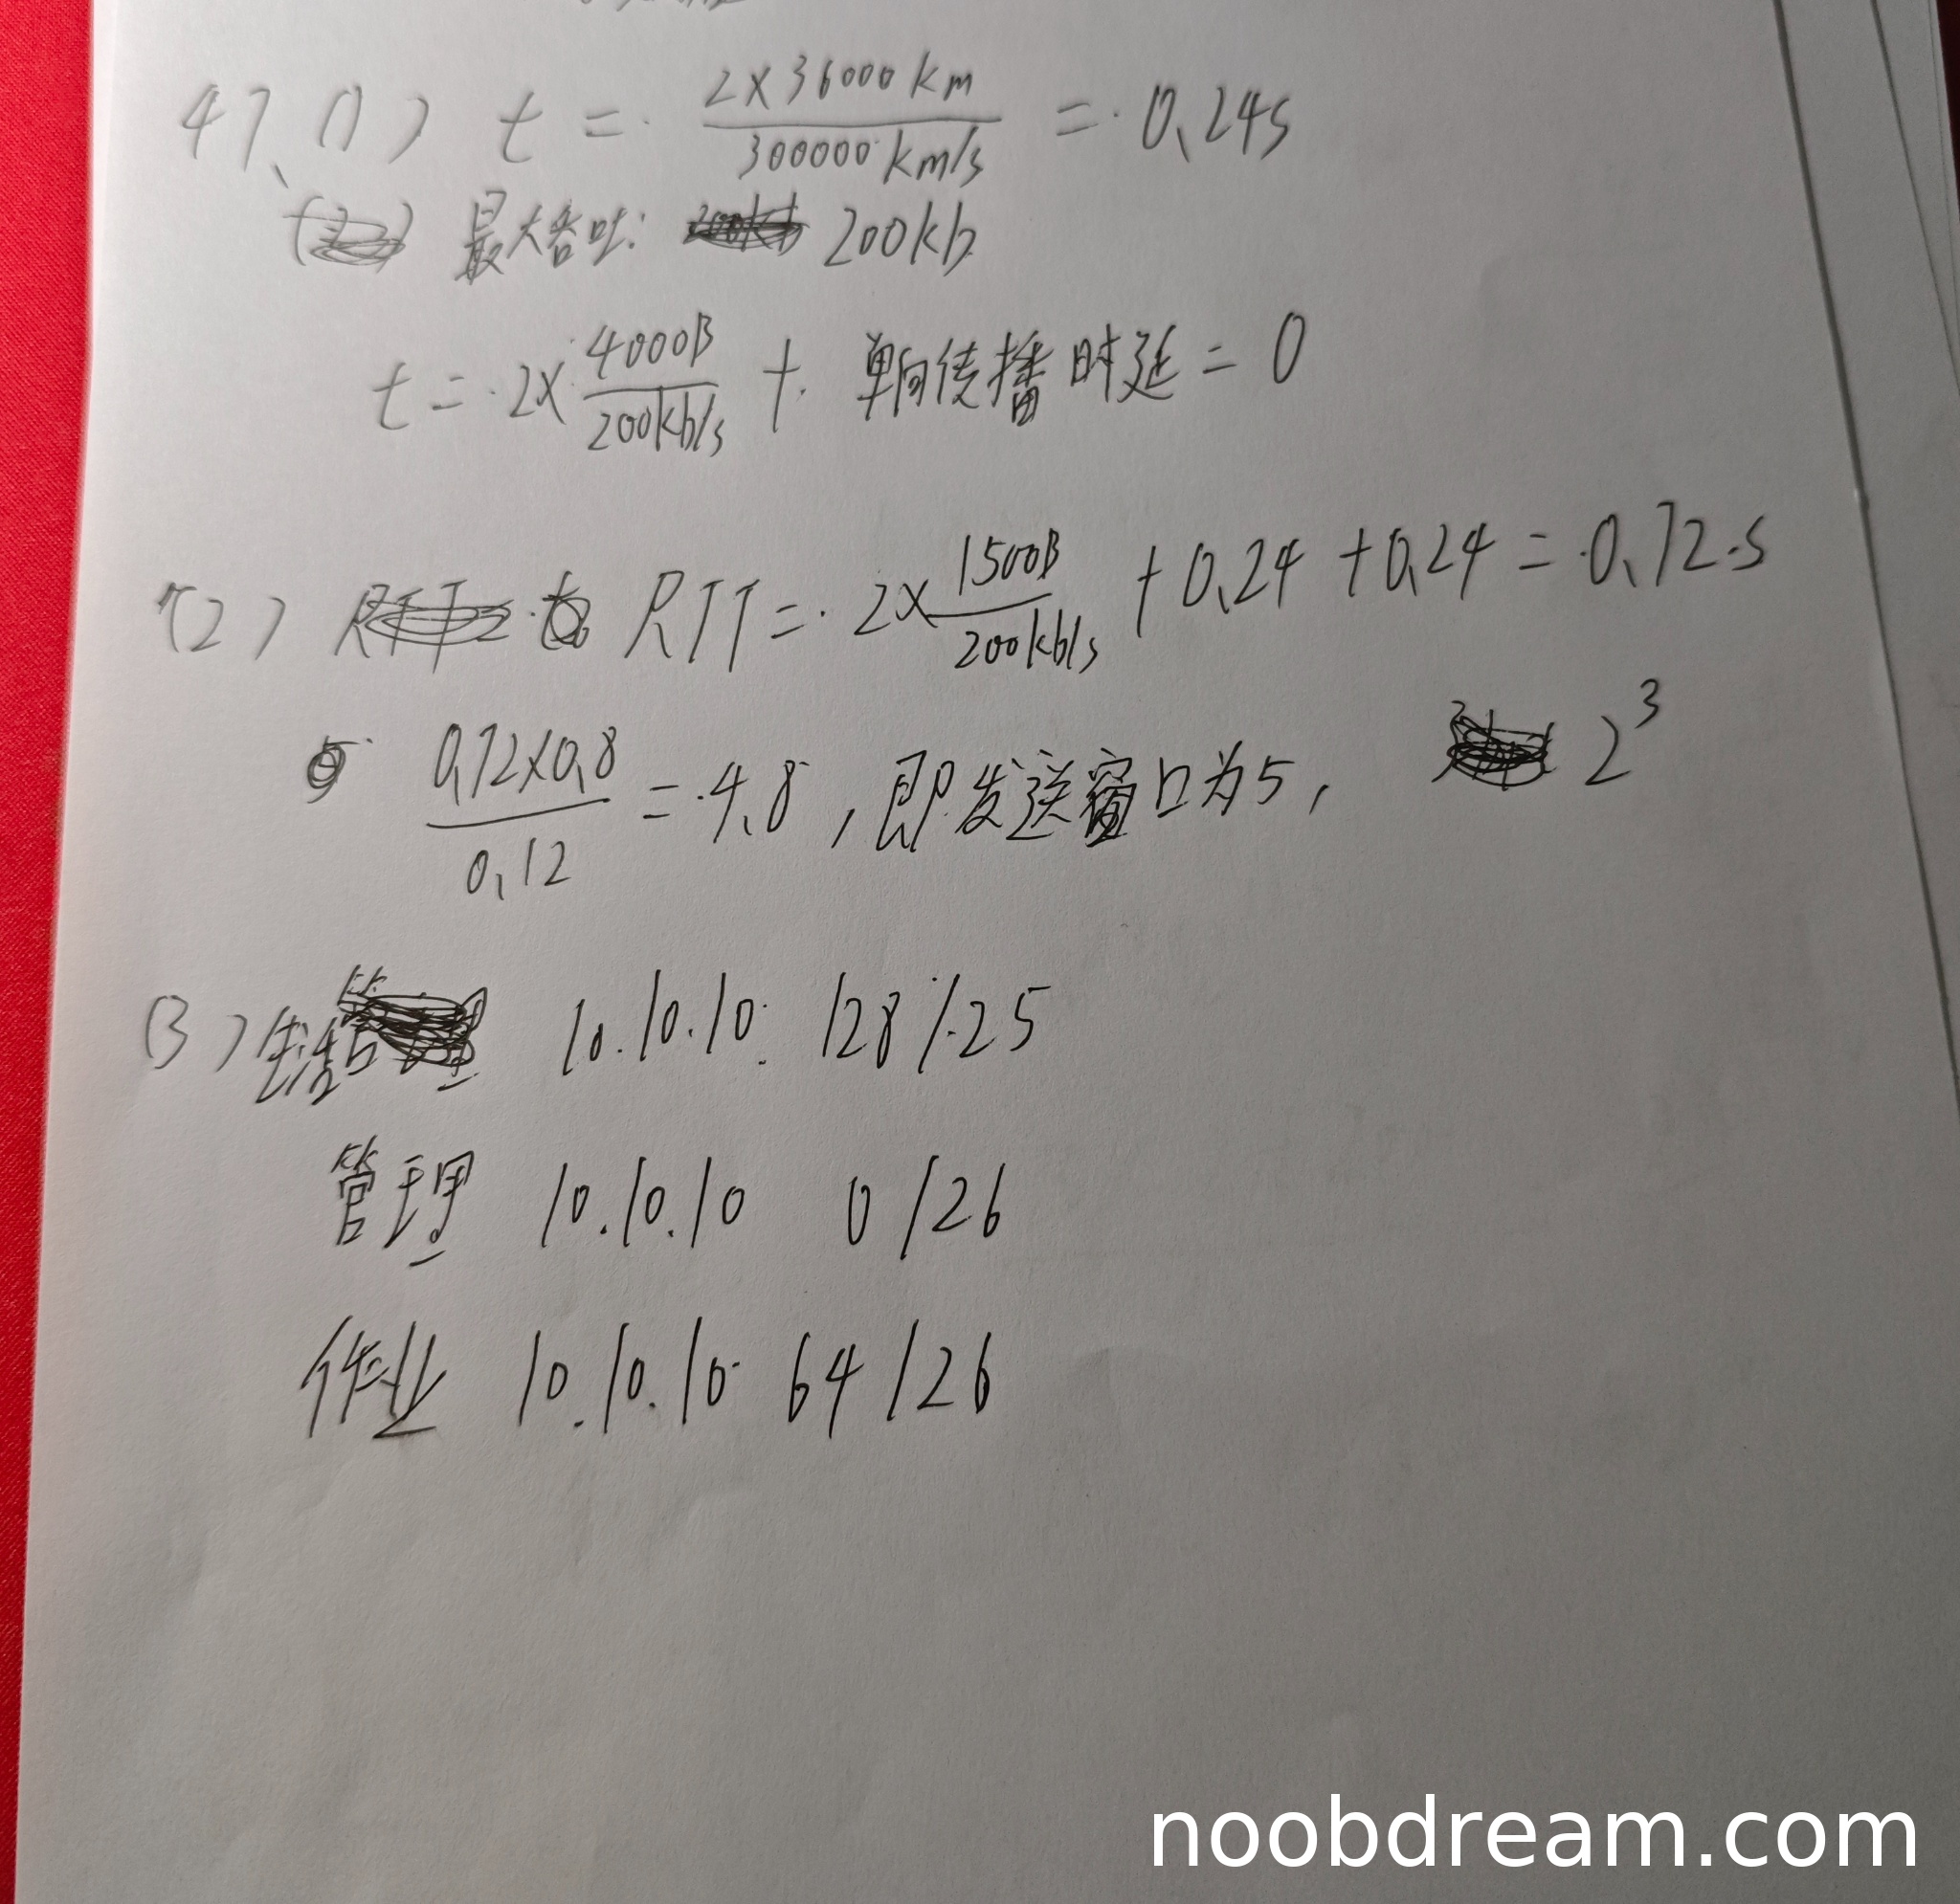 47、(1) t = 2×36000km / 300000km/s = 0.24s
最大吞吐: 200kb
t = 2× 4000B / 200kb/s + 单向传播时延 = 0
(2) RTT = 2× 1500B / 200kb/s + 0.24 + 0.24 = 0.72s
0.72×0.8 / 0.12 = 4.8, 即发送窗口为5, 2³
(3) 生活 10.10.10. 128/25
管理 10.10.10 0/26
作业 10.10.10 64/26
noobdream.com